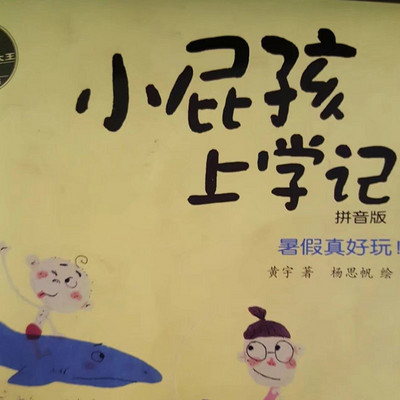 大王
小屁孩
上学记
拼音版
暑假真好玩！
黄宇 著 杨思帆 绘